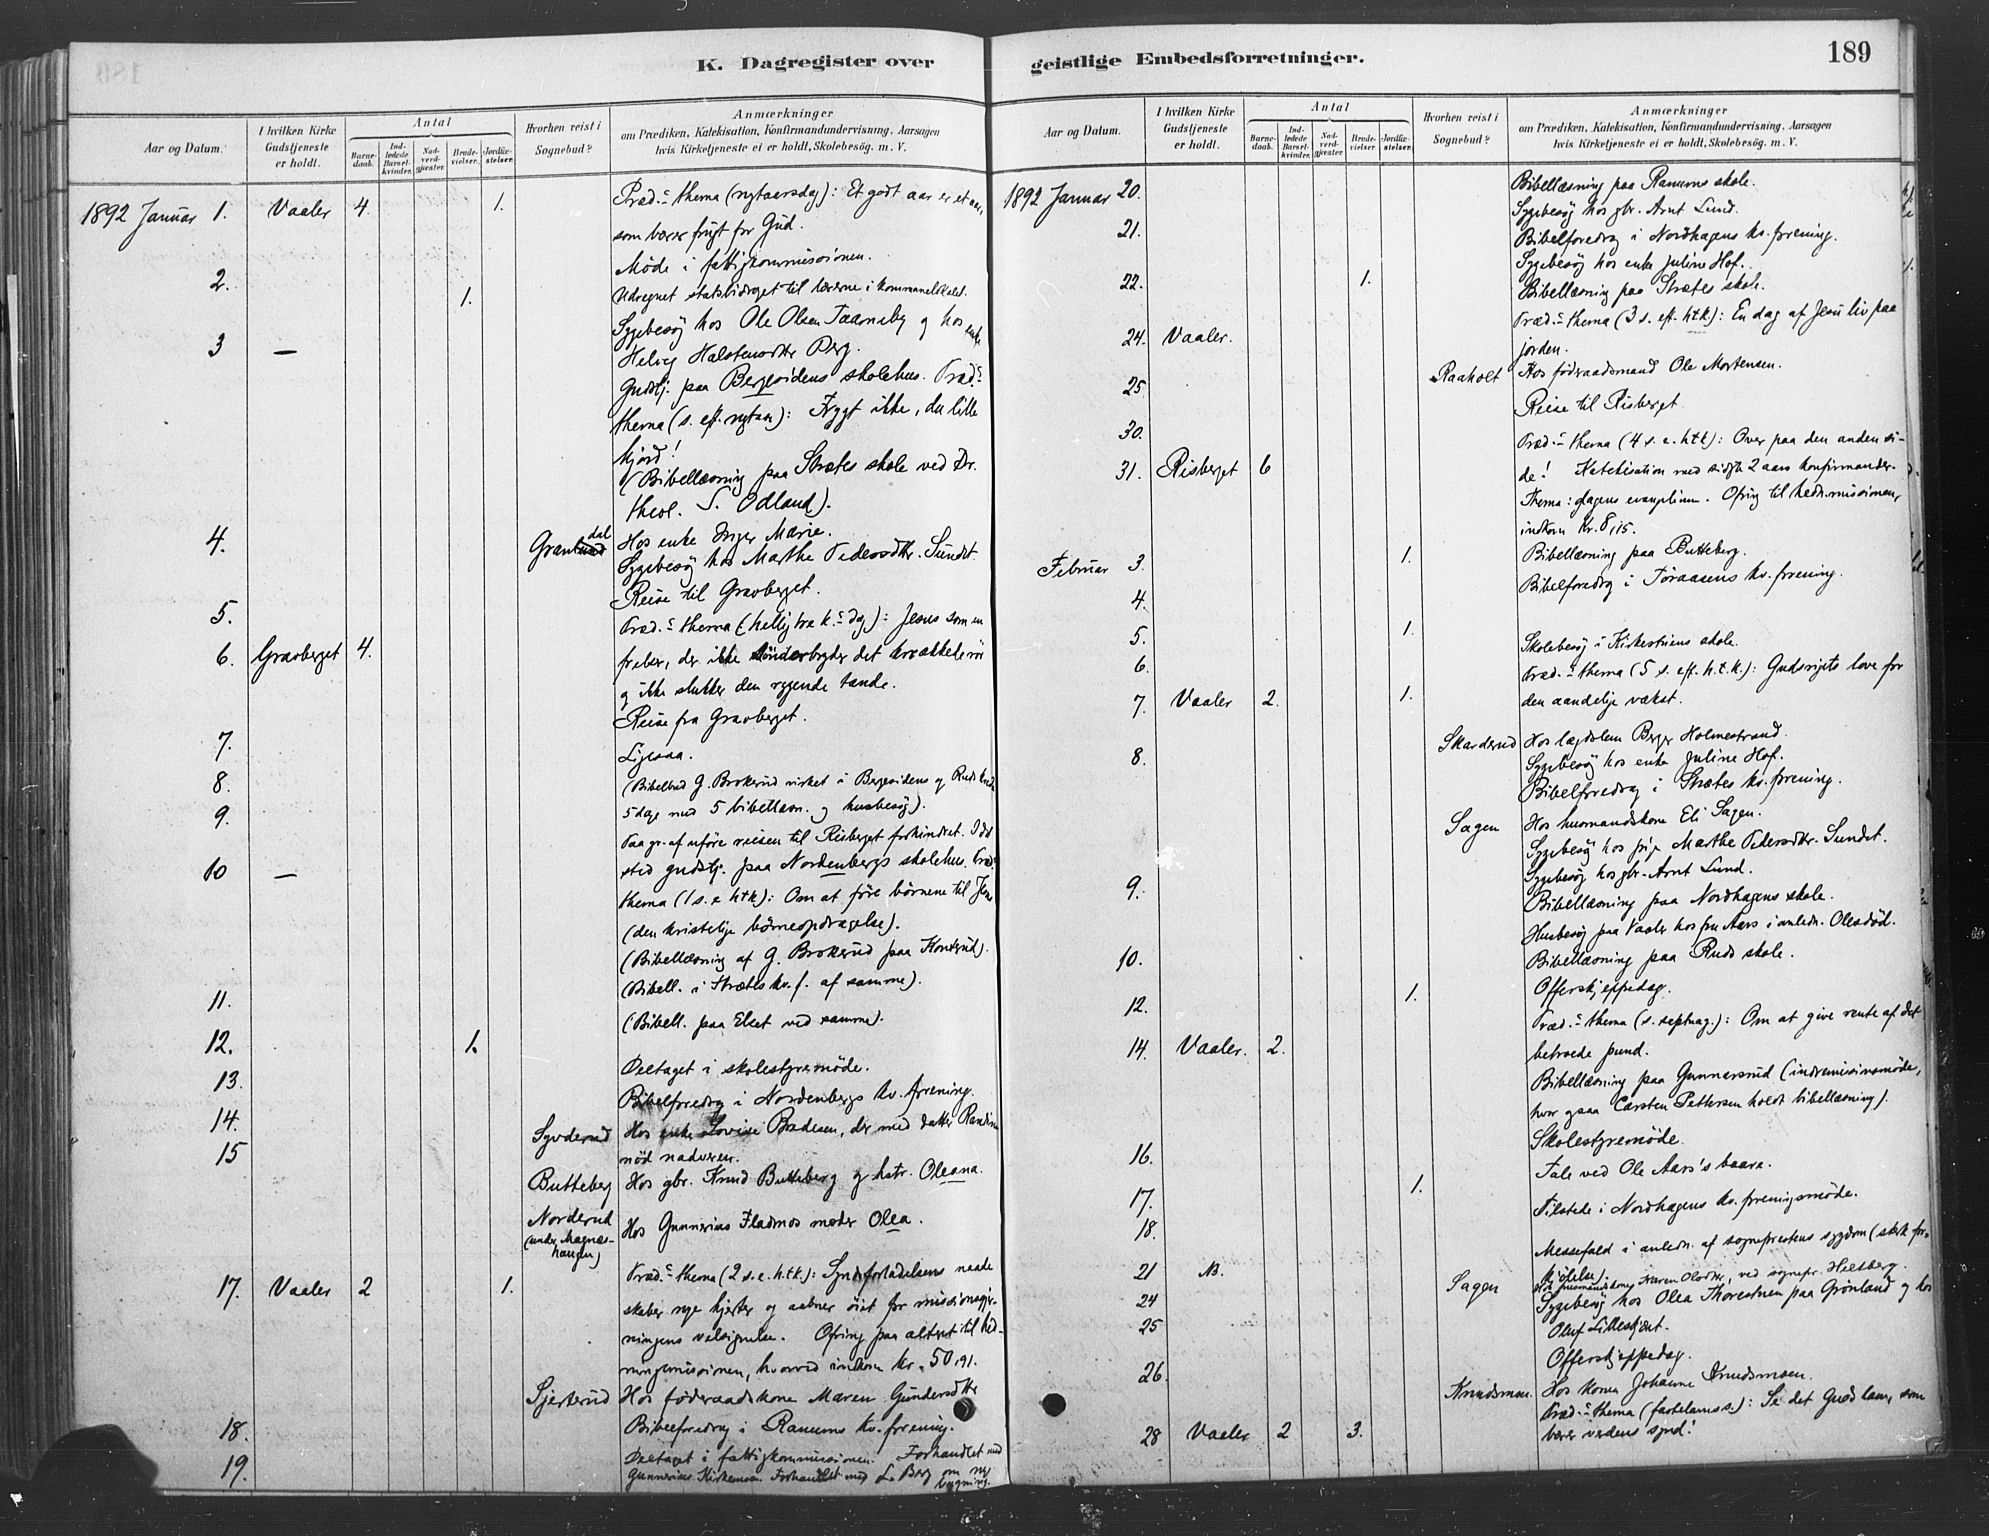 K. Dagregister over
Aar og Datum.
I hvilken Kirke Gudstjeneste er holdt.
Antal
Barnedaab.
Indledede Barselkvinder.
Nadverdgjester.
Brudevielser.
Jordfæstelser.
Hvorhen reist i Sognebud?
Anmærkninger
om Prædiken, Katekisation, Konfirmandundervisning, Aarsagen
hvis Kirketjeneste ei er holdt, Skolebesøg. m. V.
1892 Januar 1. Vaaler 4. 1. Præd.s thema (nytaarsdag): Et godt aar er et aar,
som bærer frugt for Gud.
Møde i fattigkommissionen.
2. 1. Udregnet statsbidraget til lærerne i kommunelokalet.
Sygebesøg hos Ole Olsen Taarneby og hos enke
3 — Helvig Halstensdtr Berg.
Gudstj. paa Bergesidens skolehus. Præd.s
thema (s. eft. nytaar): Frygt ikke, du lille
hjord!
(Bibellæsning paa Strætes skole ved Dr.
theol. S. Odland).
4. Granlunddal Hos enke Inger Marie.
Sygebesøg hos Marthe Pedersdtr. Sundet.
Reise til Gravberget.
5. Præd.s thema (hellig tre k.s dag): Jesus som en
6. Gravberget 4. frelser, der ikke sønderbryder det knækkede rør
og ikke slukker den rygende tande.
Reise fra Gravberget.
7. Ligesaa.
8. (Bibelbud G. Brokerud virket i Bergesidens og Ruds kreds
9. 5 dage med 5 bibellæsn. og husbesøg).
Paa gr. af uføre reisen til Risberget forhindret. I det
10 — sted gudstj. paa Nordenbergs skolehus. Præd.s
thema (1 s. e. htk): Om at føre børnene til Jesus
(den kristelige børneopdragelse).
(Bibellæsning af G. Brokerud paa Konterud).
11. (Bibell. i Strætes kv. f. af samme).
(Bibell. paa Elset ved samme).
12. 1.
13. Deltaget i skolestyremøde.
14. Bibelforedrag i Nordenbergs kv. forening.
15 Syvderud Hos enke Lovise Bredesen, der med datter Randine
nød nadveren.
Butteberg Hos gbr. Knud Butteberg og hstr. Oleana.
Norderud (under Magneshaugen) Hos Gunnerius Fladmos moder Olea.
17. Vaaler 2 1. Præd.s thema (2 s. e. h.t.k.): Syndsforladelsens naade
skaber nye hjerter og aabner øiet for missionsgjer-
ningens velsignelse. Ofring paa alteret til hed-
ningemissionen, hvorved indkom kr. 50,91.
Sjerterud Hos føderaadskone Maren Gundersdtter
18. Bibelforedrag i Ranums kv. forening.
19. Deltaget i fattigkommissionen. Forhandlet med
Gunnerius Kirkemoen. Forhandlet med L. Berg om ny
bygning.
geistlige Embedsforretninger.
189
Aar og Datum.
I hvilken Kirke Gudstjeneste er holdt.
Antal
Barnedaab.
Indledede Barselkvinder.
Nadverdgjester.
Brudevielser.
Jordfæstelser.
Hvorhen reist i Sognebud?
Anmærkninger
om Prædiken, Katekisation, Konfirmandundervisning, Aarsagen
hvis Kirketjeneste ei er holdt, Skolebesøg. m. V.
1892 Januar 20. Bibellæsning paa Ranums skole.
Sygebesøg hos gbr. Arnt Lund.
21. Bibelforedrag i Nordhagens kv. forening.
Sygebesøg hos enke Juline Hof.
22. 1. Bibellæsning paa Strætes skole.
24. Vaaler. Præd.s thema (3 s. eft. h.t.k.): En dag af Jesu liv paa
jorden.
25 Raaholt Hos føderaadsmand Ole Mortensen.
30. Reise til Risberget
31. Risberget 6 Præd.s thema (4 s. e. h.t.k): Over paa den anden si-
de! Katekisation med sidste 2 aars konfirmander.
Thema: dagens evangelium. Ofring til hedn.missionen,
indkom kr. 8,15.
Februar 3. 1. Bibellæsning paa Butteberg.
4. Bibelforedrag i Toraasens kv. forening.
5. 1.
6. Skolebesøg i Kirkestuens skole.
7. Vaaler 2. 1. Præd.s thema (5 s. eft. h.t.k.): Gudsrigets love for
den aandelige vækst.
8. Skarderud Hos lægdslem Berger Holmestrand.
Sygebesøg hos enke Juline Hof.
Bibelforedrag i Strætes kv. forening.
Sagen Hos husmandskone Eli Sagen.
Sygebesøg hos pige Marthe Pedersdtr. Sundet.
9. Sygebesøg hos gbr. Arnt Lund.
Bibellæsning paa Nordhagens skole.
Husbesøg paa Vaaler hos fru Aars i anledn. Oles død.
10. Bibellæsning paa Ruds skole.
12. 1. Offerskjeppedag.
14. Vaaler. 2. Præd.s thema (s. septuag.): Om at give rente af det
betroede pund.
Bibellæsning paa Gunnarsrud (indremissionsmøde,
hvor ogsaa Carsten Pettersen holdt bibellæsning).
16. Skolestyremøde.
17. 1. Tale ved Ole Aars's baare.
18. Tilstede i Nordhagens kv. foreningsmøde.
21 NB. Messefald i anledn. af sogneprestens sygdom (sterk for-
kjølelse)
24 Sagen Hos husmandskone Karen Olsdtr, ved sognepr. Hielsberg.
25 Sygebesøg hos Olea Thorestuen paa Grønland og hos
Oluf Lilleskjæret.
26. Offerskjeppedag.
Knudsmoen. Hos konen Johanne Knudsmoen.
28 Vaaler 2 3. Præd.s thema (fastelavnss.): Se det Guds lam, som
bærer verdens synd!